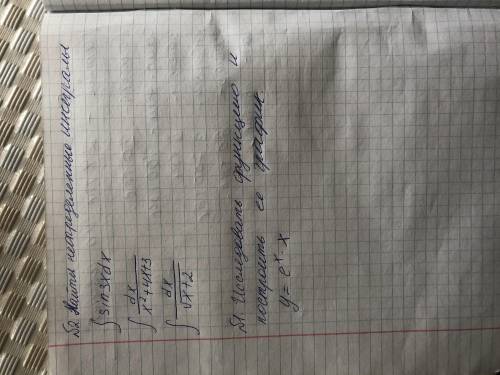 №2. Найти непределенные интегралы
∫ sin3xdx
∫ dx/(x²+4x+3)
∫ dx/(√x+2)
№1. Исследовать функцию и
построить ее график
y = eˣ · x